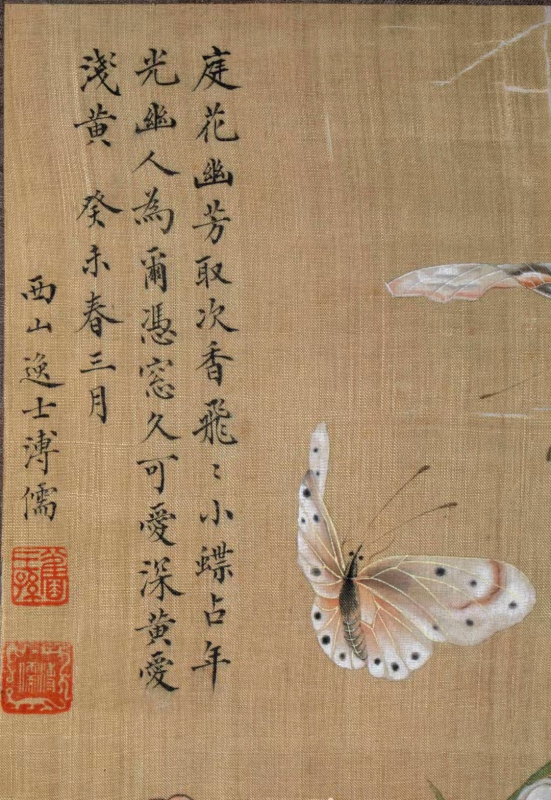 庭花幽芳取次香飛〻小蝶占年
光幽人為爾憑窓久可愛深黃愛
淺黃 癸未春三月
西山逸士溥儒
舊王孫
溥儒